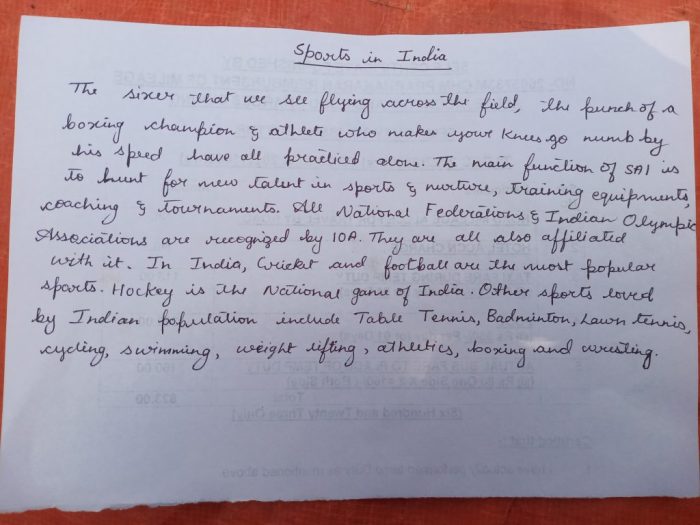 Sports in India
The sixer that we see flying across the field, the punch of a
boxing champion & athlete who makes your knees go numb by
his speed have all practiced alone. The main function of SAI is
to hunt for new talent in sports & nurture, training equipments,
coaching & tournaments. All National Federations & Indian Olympic
Associations are recognized by IOA. They are all also affiliated
with it. In India, Cricket and football are the most popular
sports. Hockey is the National game of India. Other sports loved
by Indian population include Table Tennis, Badminton, Lawn tennis,
cycling, swimming, weight lifting, athletics, boxing and wresting.